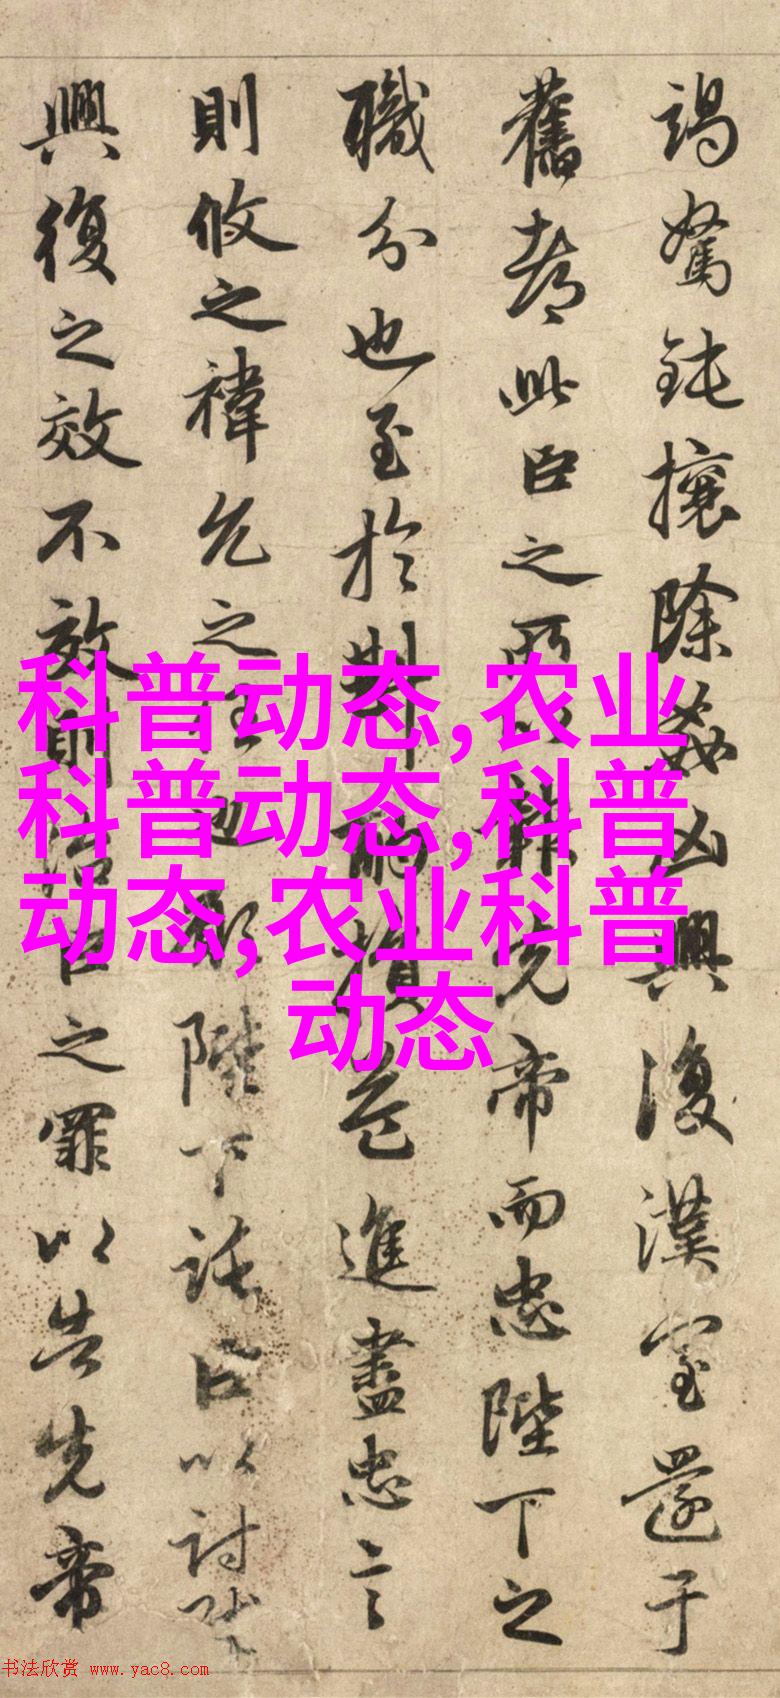 竭駑鈍攘除姦凶興復漢室還于
舊都此臣之所以報先帝而忠陛下之
職分也至於斟酌損益進盡忠言
則攸之禕允之任也願陛下託臣以討賊
興復之效不效則治臣之罪以告先帝
科普动态,农业
科普动态,科普
动态,农业科普
动态
书法欣赏 www.yac8.com